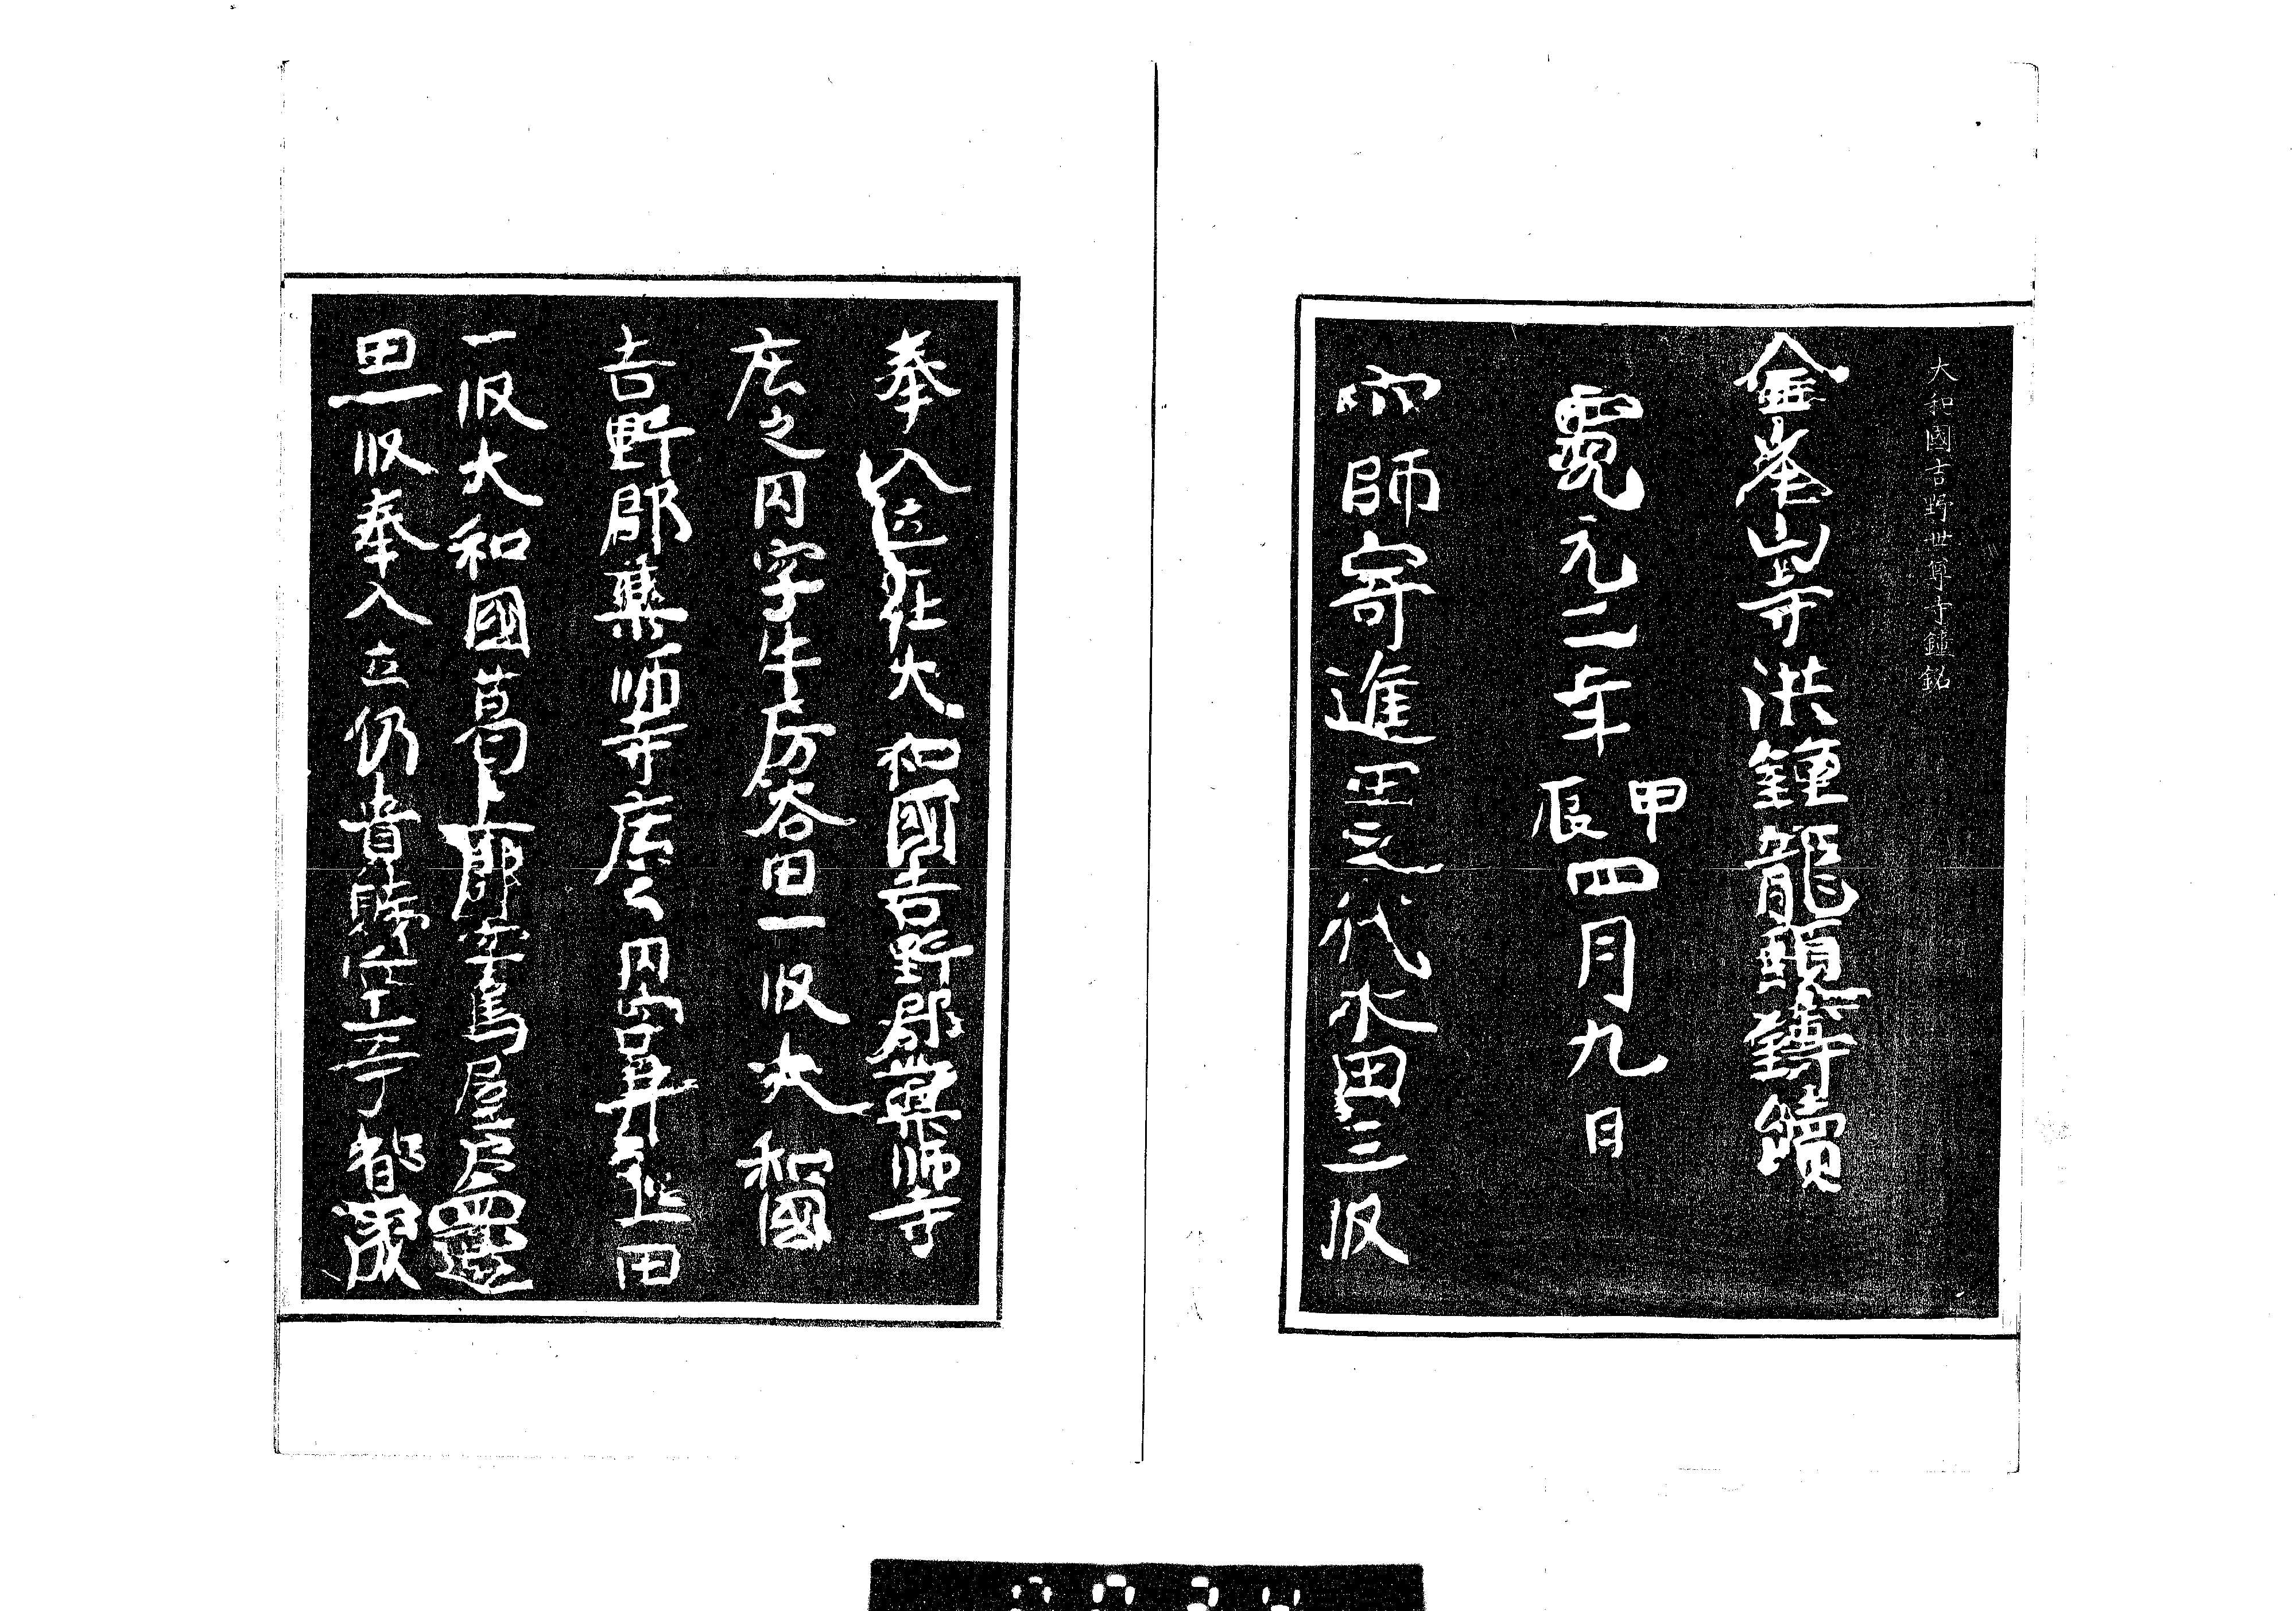 大和國吉野世尊寺鐘銘
金峯山寺洪鐘龍頭鑄鐀
寛元二年甲辰四月九日
師寄進正之代水田三段
奉入立在大和國吉野郡藥師寺
庄之内字牛房谷田一段大和國
吉野郡藥師寺庄之内字井上田
一段大和國葛上郡字鳥屋房
田一段奉入立仍貴賤